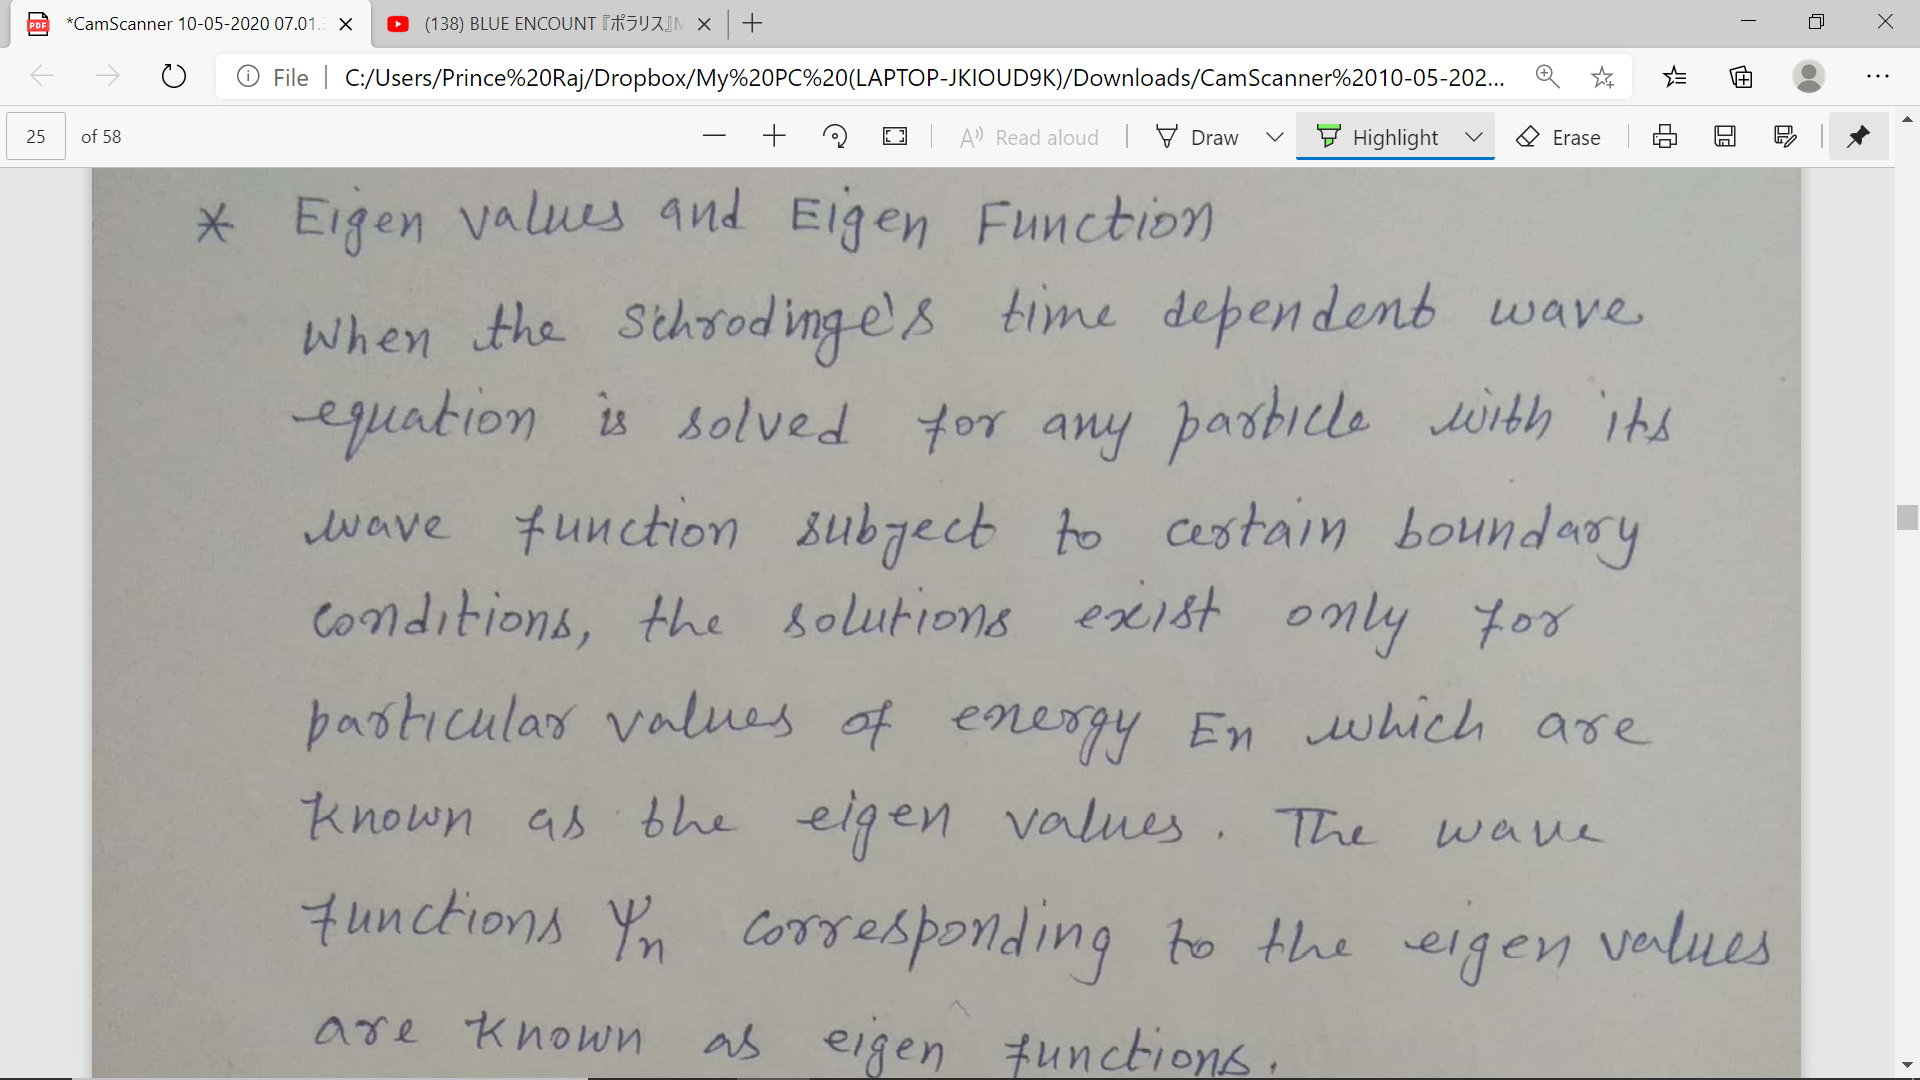 *CamScanner 10-05-2020 07.01.
(138) BLUE ENCOUNT『ポラリス』M
File
C:/Users/Prince%20Raj/Dropbox/My%20PC%20(LAPTOP-JKIOUD9K)/Downloads/CamScanner%2010-05-202...
25 of 58
Read aloud
Draw
Highlight
Erase
* Eigen values and Eigen Function
When the Schrodinge's time dependent wave
equation is solved for any particle with its
wave function subject to certain boundary
conditions, the solutions exist only for
particular values of energy En which are
known as the eigen values. The wave
functions Ψn corresponding to the eigen values
are known as eigen functions.